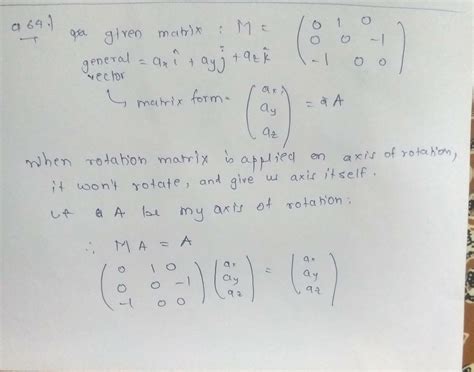 Q 69.)
given matrix : M = ( 0 1 0
0 0 -1
-1 0 0 )
general vector = ax î + ay ĵ + az k̂
↳ matrix form = ( ax
ay
az ) = A
When rotation matrix is applied on axis of rotation,
it won't rotate, and give us axis itself.
let A be my axis of rotation:
∴ M A = A
( 0 1 0
0 0 -1
-1 0 0 ) ( ax
ay
az ) = ( ax
ay
az )